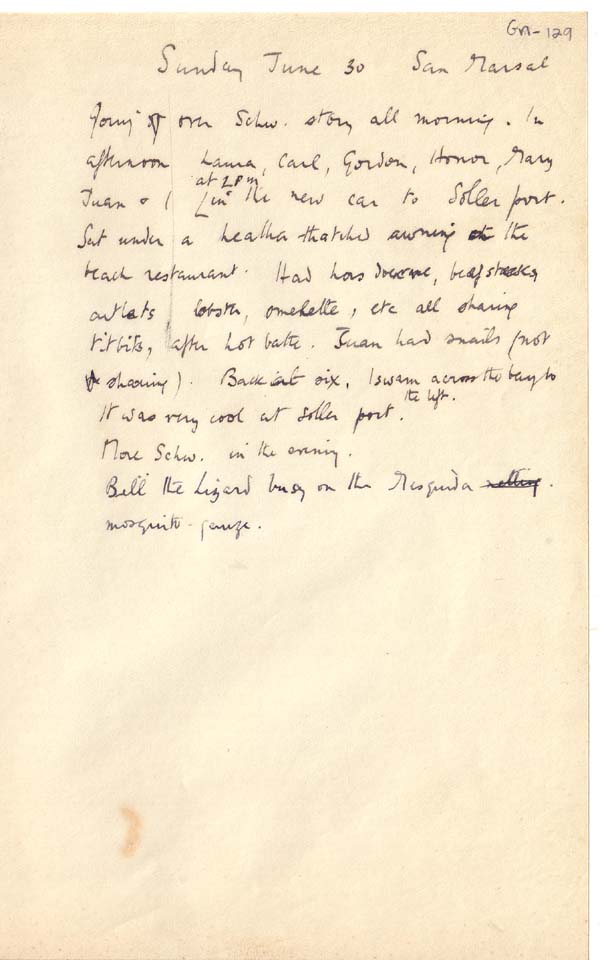 GM-129
Sunday June 30 San Marsal
Going over Schw. story all morning. In
afternoon Laura, Carl, Gordon, Honor, Mary
at 2 pm
Juan & I in the new car to Soller port.
Sat under a heather-thatched awning the
beach restaurant. Had hors doevre, beefsteaks
cutlets lobster, omelette, etc all sharing
titbits, after hot bathe. Juan had snails (not
sharing). Back at six. I swam across the bay to
the left.
It was very cool at Soller port.
More Schw. in the evening.
Bill the Lizard busy on the Mesquida netting.
mosquito-gauze.